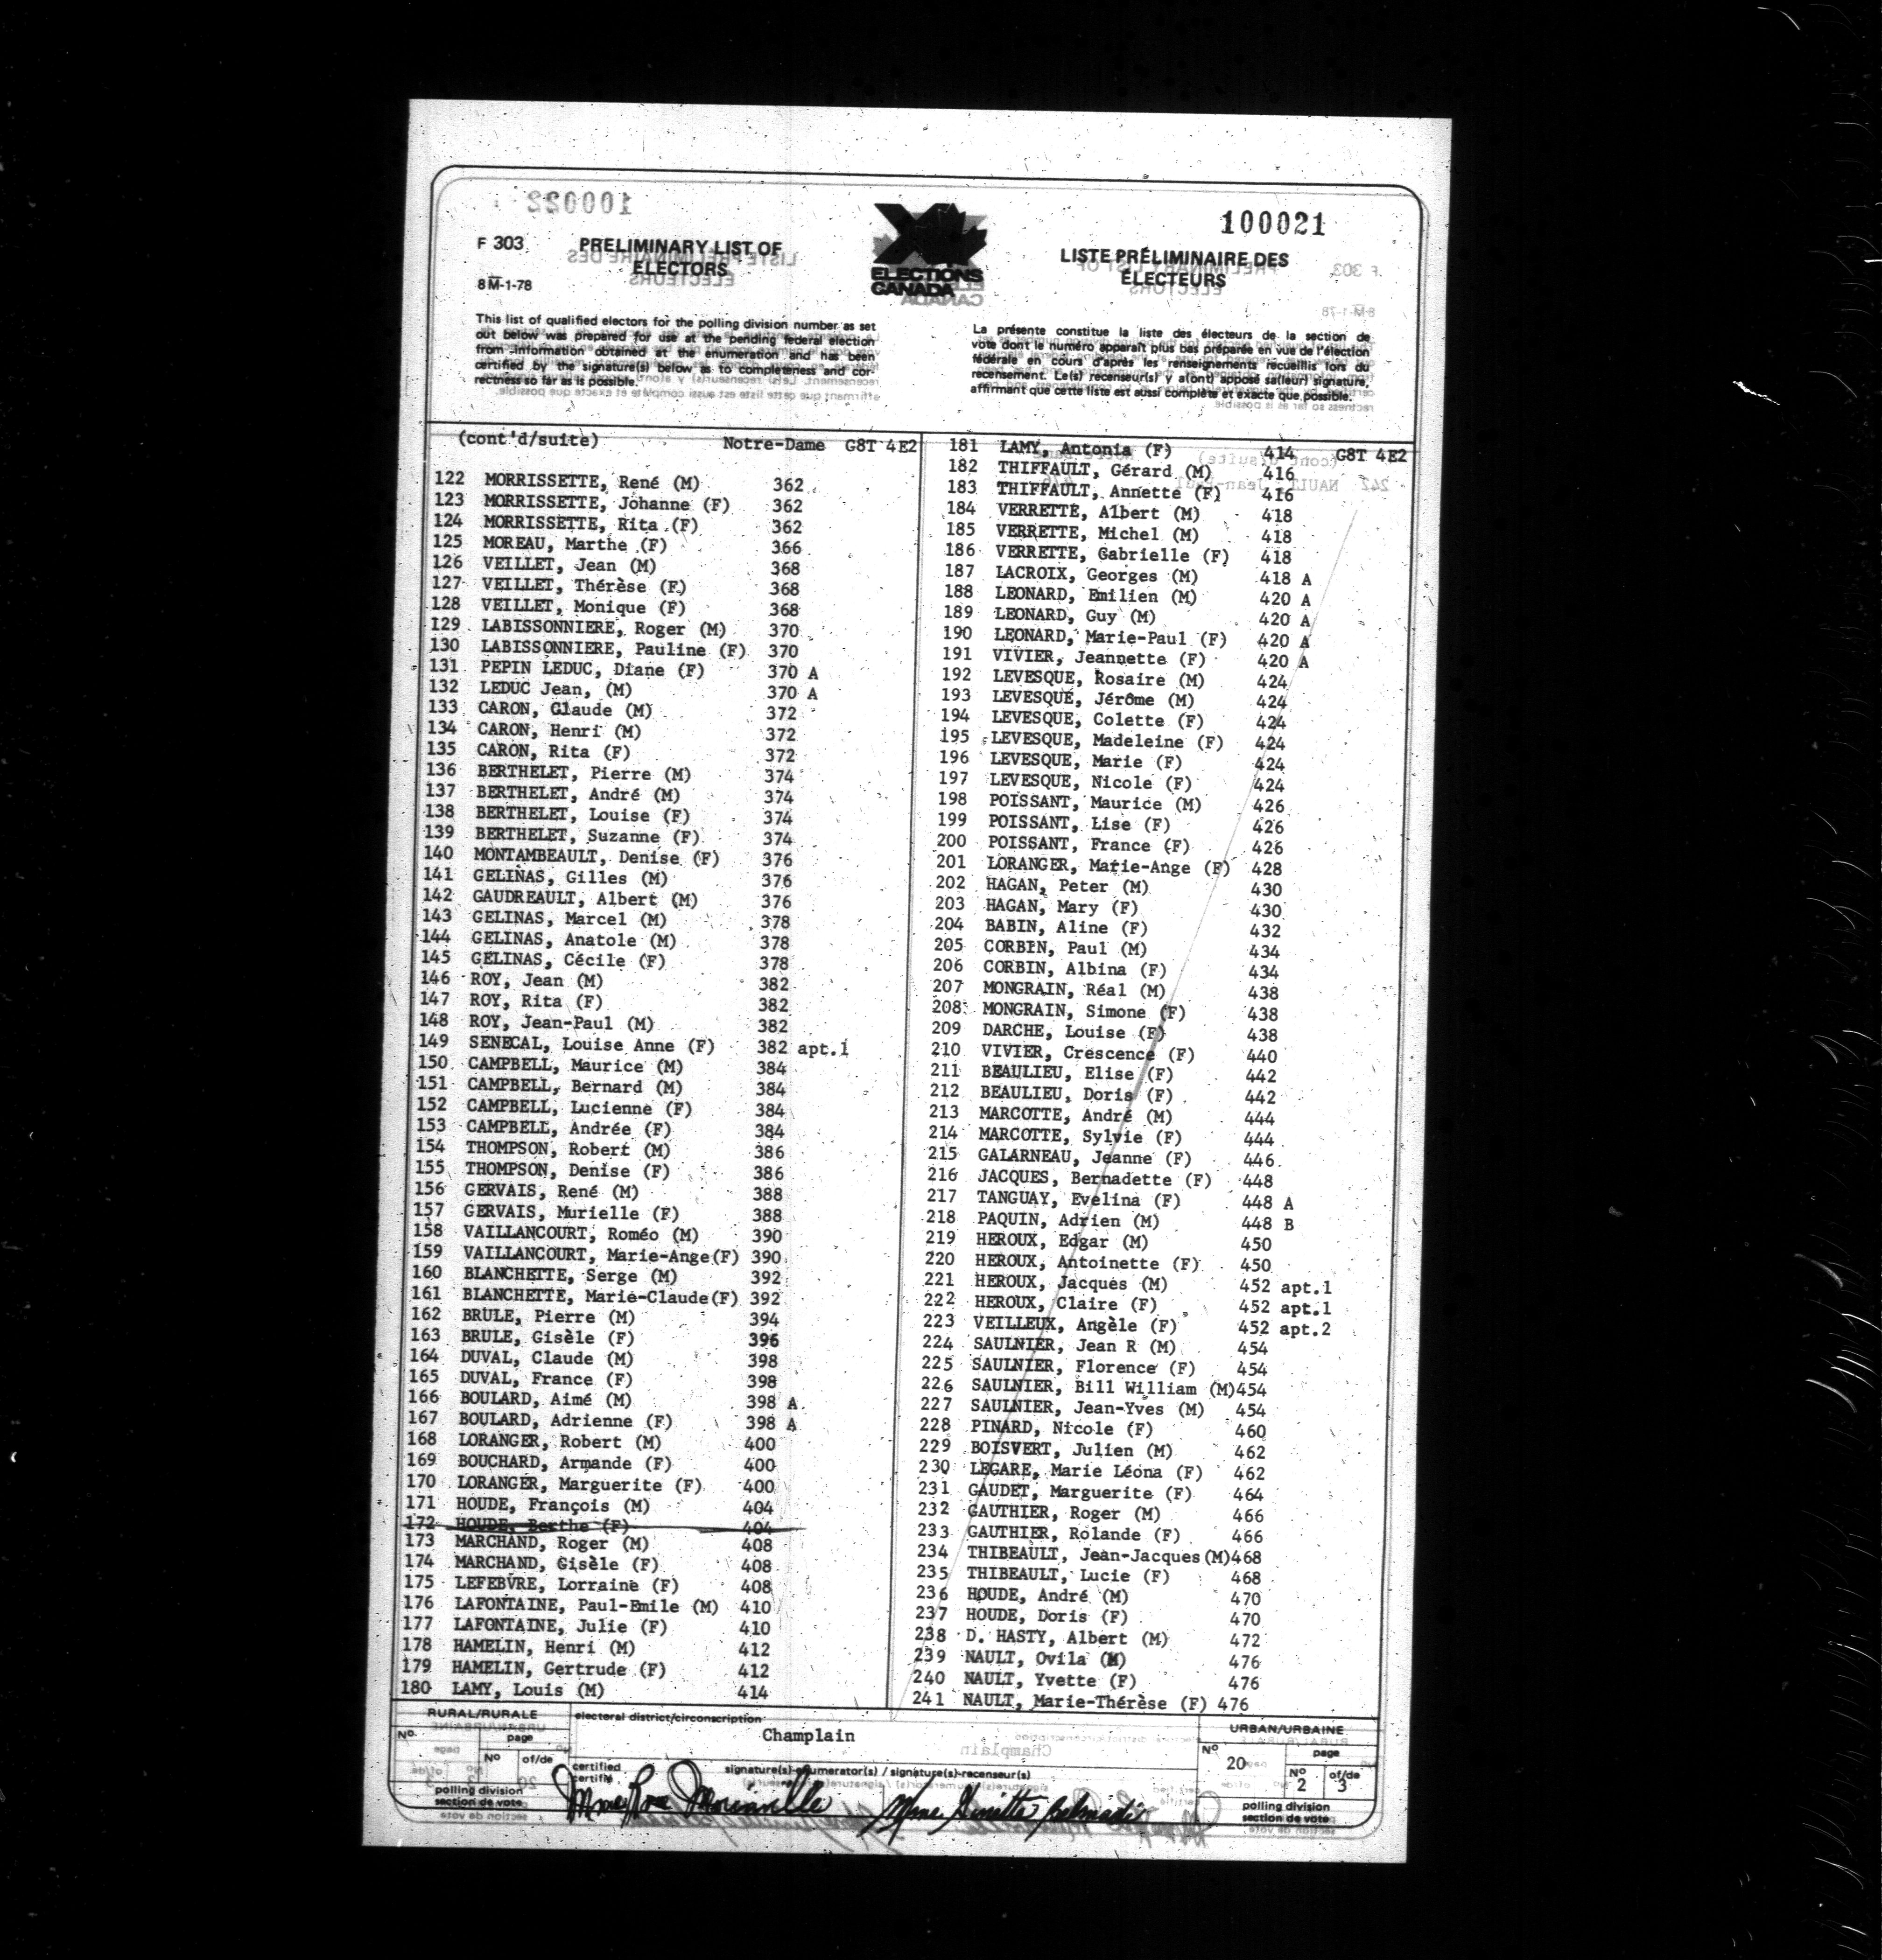 100021
F 303
PRELIMINARY LIST OF
ELECTORS
8M-1-78
ELECTIONS
CANADA
LISTE PRÉLIMINAIRE DES
ÉLECTEURS
This list of qualified electors for the polling division number as set
out below was prepared for use at the pending federal election
from information obtained at the enumeration and has been
certified by the signature(s) below as to completeness and cor-
rectness so far as is possible.
La présente constitue la liste des électeurs de la section de
vote dont le numéro apparaît plus bas préparée en vue de l'élection
fédérale en cours d'après les renseignements recueillis lors du
recensement. Le(s) recenseur(s) y a(ont) apposé sa(leur) signature,
affirmant que cette liste est aussi complète et exacte que possible.
(cont'd/suite) Notre-Dame G8T 4E2
122 MORRISSETTE, René (M) 362
123 MORRISSETTE, Johanne (F) 362
124 MORRISSETTE, Rita (F) 362
125 MOREAU, Marthe (F) 366
126 VEILLET, Jean (M) 368
127 VEILLET, Thérèse (F) 368
128 VEILLET, Monique (F) 368
129 LABISSONNIERE, Roger (M) 370
130 LABISSONNIERE, Pauline (F) 370
131 PEPIN LEDUC, Diane (F) 370 A
132 LEDUC Jean, (M) 370 A
133 CARON, Claude (M) 372
134 CARON, Henri (M) 372
135 CARON, Rita (F) 372
136 BERTHELET, Pierre (M) 374
137 BERTHELET, André (M) 374
138 BERTHELET, Louise (F) 374
139 BERTHELET, Suzanne (F) 374
140 MONTAMBEAULT, Denise (F) 376
141 GELINAS, Gilles (M) 376
142 GAUDREAULT, Albert (M) 376
143 GELINAS, Marcel (M) 378
144 GELINAS, Anatole (M) 378
145 GELINAS, Cécile (F) 378
146 ROY, Jean (M) 382
147 ROY, Rita (F) 382
148 ROY, Jean-Paul (M) 382
149 SENECAL, Louise Anne (F) 382 apt.1
150 CAMPBELL, Maurice (M) 384
151 CAMPBELL, Bernard (M) 384
152 CAMPBELL, Lucienne (F) 384
153 CAMPBELL, Andrée (F) 384
154 THOMPSON, Robert (M) 386
155 THOMPSON, Denise (F) 386
156 GERVAIS, René (M) 388
157 GERVAIS, Murielle (F) 388
158 VAILLANCOURT, Roméo (M) 390
159 VAILLANCOURT, Marie-Ange(F) 390
160 BLANCHETTE, Serge (M) 392
161 BLANCHETTE, Marie-Claude(F) 392
162 BRULE, Pierre (M) 394
163 BRULE, Gisèle (F) 396
164 DUVAL, Claude (M) 398
165 DUVAL, France (F) 398
166 BOULARD, Aimé (M) 398 A
167 BOULARD, Adrienne (F) 398 A
168 LORANGER, Robert (M) 400
169 BOUCHARD, Armande (F) 400
170 LORANGER, Marguerite (F) 400
171 HOUDE, François (M) 404
172 HOUDE, Berthe (F) 404
173 MARCHAND, Roger (M) 408
174 MARCHAND, Gisèle (F) 408
175 LEFEBVRE, Lorraine (F) 408
176 LAFONTAINE, Paul-Emile (M) 410
177 LAFONTAINE, Julie (F) 410
178 HAMELIN, Henri (M) 412
179 HAMELIN, Gertrude (F) 412
180 LAMY, Louis (M) 414
181 LAMY, Antonia (F) 414 G8T 4E2
182 THIFFAULT, Gérard (M) 416
183 THIFFAULT, Annette (F) 416
184 VERRETTE, Albert (M) 418
185 VERRETTE, Michel (M) 418
186 VERRETTE, Gabrielle (F) 418
187 LACROIX, Georges (M) 418 A
188 LEONARD, Emilien (M) 420 A
189 LEONARD, Guy (M) 420 A
190 LEONARD, Marie-Paul (F) 420 A
191 VIVIER, Jeannette (F) 420 A
192 LEVESQUE, Rosaire (M) 424
193 LEVESQUE, Jérôme (M) 424
194 LEVESQUE, Colette (F) 424
195 LEVESQUE, Madeleine (F) 424
196 LEVESQUE, Marie (F) 424
197 LEVESQUE, Nicole (F) 424
198 POISSANT, Maurice (M) 426
199 POISSANT, Lise (F) 426
200 POISSANT, France (F) 426
201 LORANGER, Marie-Ange (F) 428
202 HAGAN, Peter (M) 430
203 HAGAN, Mary (F) 430
204 BABIN, Aline (F) 432
205 CORBIN, Paul (M) 434
206 CORBIN, Albina (F) 434
207 MONGRAIN, Réal (M) 438
208 MONGRAIN, Simone (F) 438
209 DARCHE, Louise (F) 438
210 VIVIER, Crescence (F) 440
211 BEAULIEU, Elise (F) 442
212 BEAULIEU, Doris (F) 442
213 MARCOTTE, André (M) 444
214 MARCOTTE, Sylvie (F) 444
215 GALARNEAU, Jeanne (F) 446
216 JACQUES, Bernadette (F) 448
217 TANGUAY, Evelina (F) 448 A
218 PAQUIN, Adrien (M) 448 B
219 HEROUX, Edgar (M) 450
220 HEROUX, Antoinette (F) 450
221 HEROUX, Jacques (M) 452 apt.1
222 HEROUX, Claire (F) 452 apt.1
223 VEILLEUX, Angèle (F) 452 apt.2
224 SAULNIER, Jean R (M) 454
225 SAULNIER, Florence (F) 454
226 SAULNIER, Bill William (M)454
227 SAULNIER, Jean-Yves (M) 454
228 PINARD, Nicole (F) 460
229 BOISVERT, Julien (M) 462
230 LEGARE, Marie Léona (F) 462
231 GAUDET, Marguerite (F) 464
232 GAUTHIER, Roger (M) 466
233 GAUTHIER, Rolande (F) 466
234 THIBEAULT, Jean-Jacques(M)468
235 THIBEAULT, Lucie (F) 468
236 HOUDE, André (M) 470
237 HOUDE, Doris (F) 470
238 D. HASTY, Albert (M) 472
239 NAULT, Ovila (M) 476
240 NAULT, Yvette (F) 476
241 NAULT, Marie-Thérèse (F) 476
RURAL/RURALE
No.
page
No of/de
polling division
section de vote
electoral district/circonscription
Champlain
certified
certifié
signature(s)-enumerator(s) / signature(s)-recenseur(s)
Mme Rose
Mme Ginette
URBAN/URBAINE
No 20
page
No 2 of/de 3
polling division
section de vote